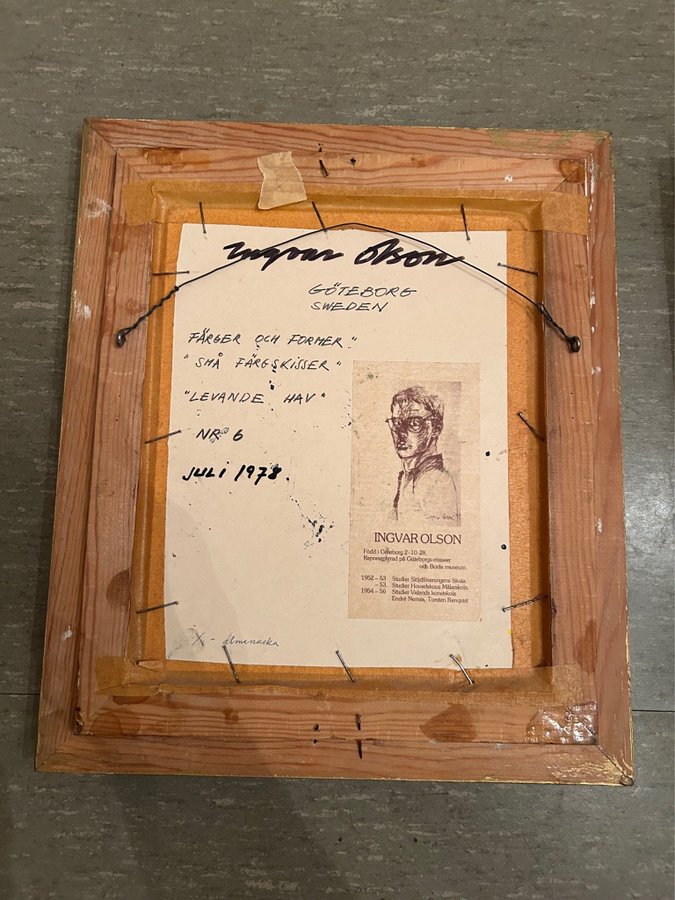 Ingvar Olson
GÖTEBORG
SWEDEN
FÄRGER OCH FORMER"
"SMÅ FÄRGSKISSER"
"LEVANDE HAV"
NR 6
JULI 1978.
INGVAR OLSON
Född i Göteborg 2-10-28.
Representerad på Göteborgs museer
och Borås museum.
1952 – 53 Studier Slöjdföreningens Skola.
– 53 Studier Hovedskous Målarskola.
1954 – 56 Studier Valands konstskola
Endre Nemes, Torsten Renqvist
X - almanacka